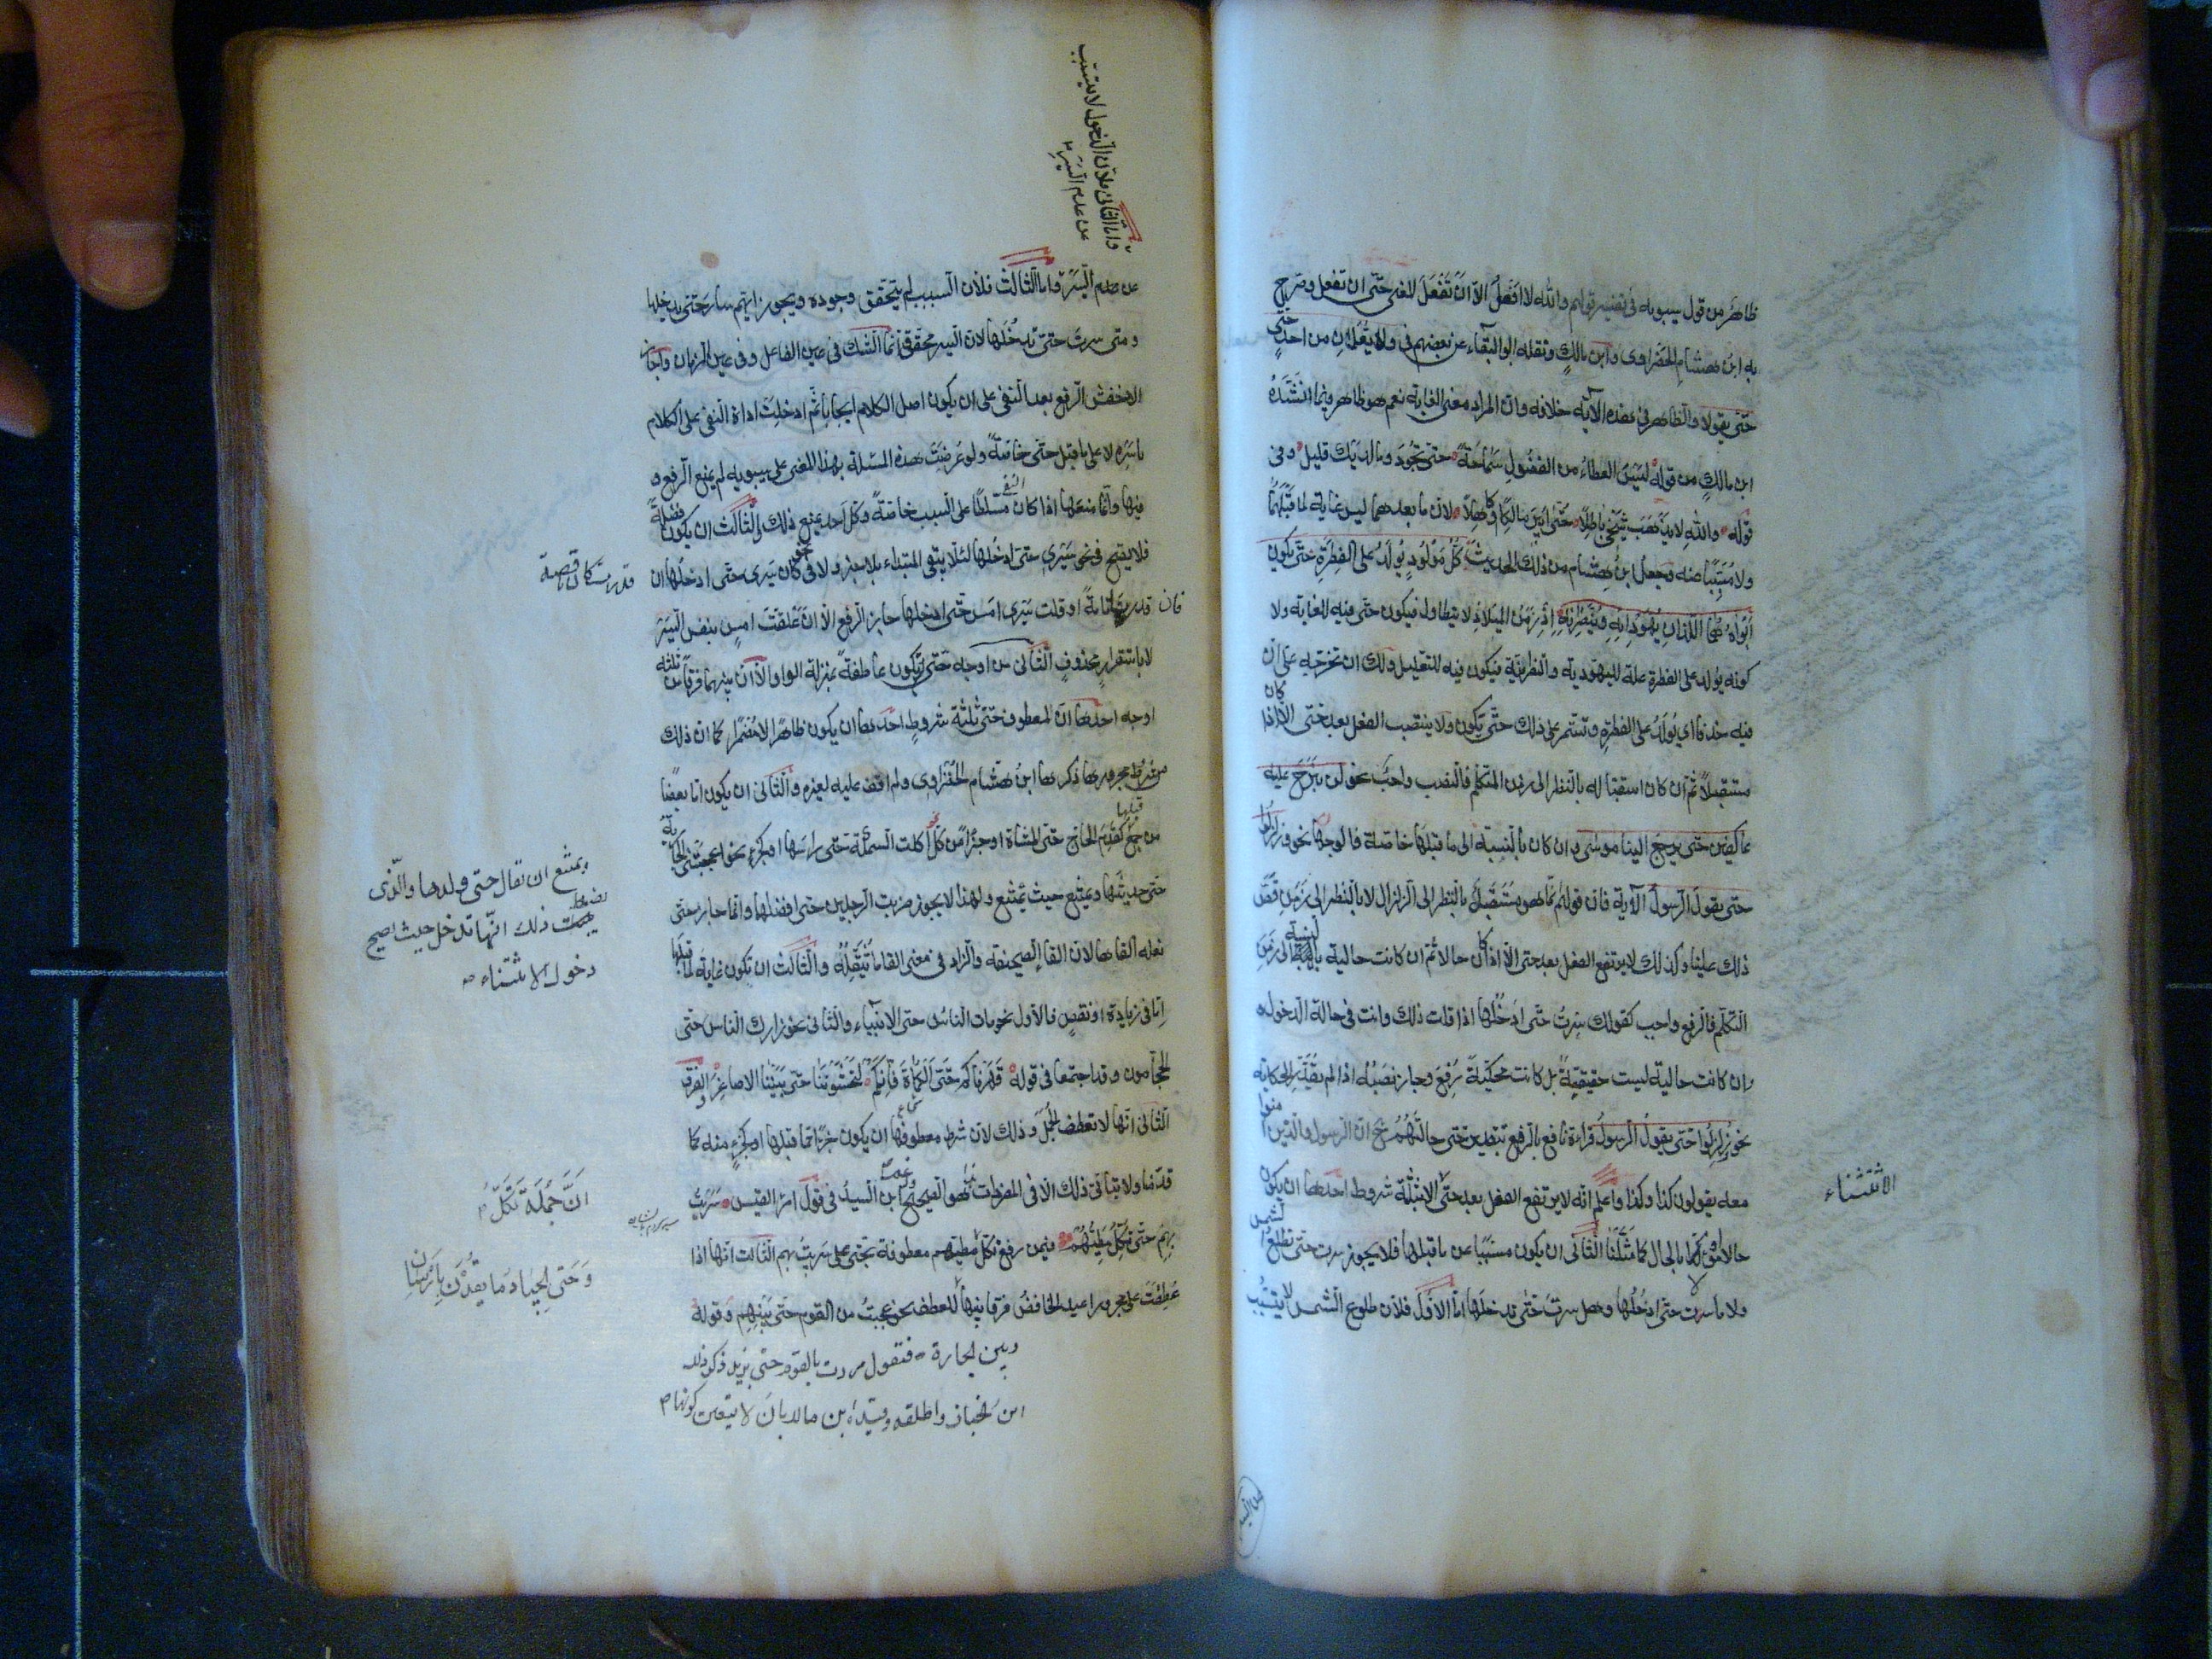 ظاهر من قول سيبويه فى تفسير قولهم والله لا افعل الا ان تفعل المعنى حتى ان تفعل وصرح
به ابن هشام الخضراوى وابن مالك ونقله ابو البقاء عن بعضهم فى وما يعلمان من احد حتى
حتى يقولا والظاهر فى هذه الآية خلافه وان المراد معنى الغاية نعم هو ظاهر فيما انشده
ابن مالك من قوله ليس العطاء من الفضول سماحة حتى تجود وما لديك قليل وفى
قوله والله لا يذهب شيخى باطلا حتى ابير مالكا وكاهلا لان ما بعدهما ليس غاية لما قبلهما
ولا مسببا عنه وجعل ابن هشام من ذلك الحديث كل مولود يولد على الفطرة حتى يكون
ابواه هما اللذان يهودانه وينصرانه اذ زمن الميلاد لا يتطاول فيكون حتى فيه للغاية ولا
كونه يولد على الفطرة علة لليهودية والنصرانية فيكون فيه للتعليل ولك ان تخرجه على ان
فيه حذفا اى يولد على الفطرة ويستمر على ذلك حتى يكون ولا ينتصب الفعل بعد حتى الا اذا كان
مستقبلا ثم ان كان استقباله بالنظر الى زمن المتكلم فالنصب واجب نحو لن نبرح عليه
عاكفين حتى يرجع الينا موسى وان كان بالنسبة الى ما قبلها خاصة فالوجهان نحو وزلزلوا
حتى يقول الرسول الآية فان قولهم انما هو مستقبل بالنظر الى الزلزال لا بالنظر الى زمن قص
ذلك علينا وكذلك لا يرتفع الفعل بعد حتى الا اذا كان حالا ثم ان كانت حالية بالنسبة الى زمن
التكلم فالرفع واجب كقولك سرت حتى ادخلها اذا قلت ذلك وانت فى حالة الدخول
وان كانت حالية ليست حقيقية بل كانت محكية رفع وجاز نصبه اذا لم يقدر الحكاية
نحو وزلزلوا حتى يقول الرسول قراءة نافع بالرفع بتقدير حتى حالتهم ح ان الرسول والذين امنوا
معه يقولون كذا وكذا واعلم انه لا يرتفع الفعل بعد حتى الا بثلثة شروط احدها ان يكون
حالا او مؤولا بالحال كما مثلنا الثانى ان يكون مسببا عن ما قبلها فلا يجوز سرت حتى تطلع الشمس
ولا ما سرت حتى ادخلها وهل سرت حتى تدخلها اما الاول فلان طلوع الشمس لا يتسبب
الاستثناء
واما الثانى فلان الدخول لا يتسبب
عن عدم السير
عن عدم السير واما الثالث فلان السبب لم يتحقق وجوده ويجوز ايهم سار حتى يدخلها
ومتى سرت حتى تدخلها لان السير محقق وانما الشك فى عين الفاعل وفى عين الزمان واجاز
الاخفش الرفع بعد النفى على ان يكون اصل الكلام ايجابا ثم ادخلت اداة النفى على الكلام
باسره لا على ما قبل حتى خاصة ولو عرضت هذه المسئلة بهذا المعنى على سيبويه لم يمنع الرفع
فيها وانما منعها اذا كان النفى مسلطا على السبب خاصة وكل احد يمنع ذلك والثالث ان يكون فضلة
فلا يصح فى نحو سيرى حتى ادخلها لئلا يبقى المبتداء بلا خبر ولا فى نحو كان سيرى حتى ادخلها ان
قدرت كان ناقصة
فان قدرتها تامة او قلت سيرى امس حتى ادخلها جاز الرفع الا ان علقت امس بنفس السير
لا باستقرار محذوف الثانى من اوجه حتى ان يكون عاطفة بمنزلة الواو الا ان بينهما فرقا من ثلثة
اوجه احدها ان لمعطوف حتى ثلثة شروط احدها ان يكون ظاهرا لا مضمرا كما ان ذلك
شرط مجرورها ذكرها ابن هشام الخضراوى ولم اقف عليه لغيره والثانى ان يكون اما بعضا
من جمع قبلها كقدم الحاج حتى المشاة او جزءا من كل نحو اكلت السمكة حتى راسها او كجزء نحو اعجبتنى الجارية
حتى حديثها ويمتنع ان تقول حتى ولدها والذى
يضبط ذلك انها تدخل حيث يصح
دخول الاستثناء
ويمتنع حيث يمتنع ولهذا لا يجوز ضربت الرجلين حتى افضلهما وانما جاز حتى
نعله القاها لان القاء الصحيفة والزاد فى معنى القاء ما يثقله والثالث ان تكون غاية لما قبلها
اما فى زيادة او نقص فالاول نحو مات الناس حتى الانبياء والثانى نحو زارك الناس حتى
الحجامون وقد اجتمعا فى قوله قهرناكم حتى الكماة فانكم لتخشوننا حتى بنينا الاصاغر الفرق
الثانى انها لا تعطف الجمل وذلك لان شرط معطوفها ان يكون جزءا مما قبلها او كجزء منه كما
قدمنا ولا يتاتى ذلك الا فى المفردات هذا هو الصحيح وزعم ابن السيد فى قول امرء القيس سريت
بهم حتى تكل مطيهم فيمن رفع تكل
ان جملة تكل
مطيهم معطوفة بحتى على سريت بهم الثالث انها اذا
عطفت على مجرور اعيد الخافض فرقا بينها للعطف نحو عجبت من القوم حتى بنيهم وقوله
وحتى الجياد ما يقدن بارسان
وبين الجارة فتقول مررت بالقوم حتى بزيد ذكر ذلك
ابن الخباز واطلقه وقيده ابن مالك بان لا يتعين كونها